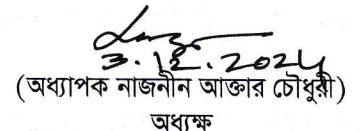 3.12.2024
(অধ্যাপক নাজনীন আক্তার চৌধুরী)
অধ্যক্ষ